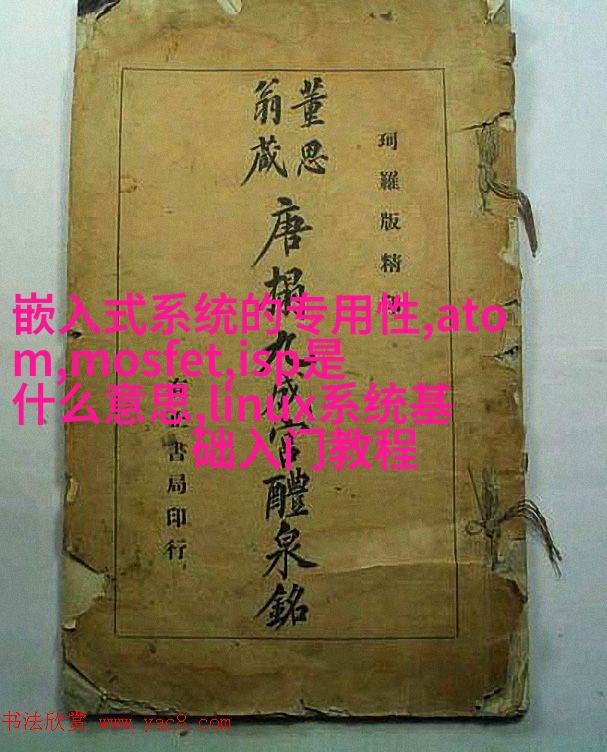 珂羅版精
董思
翁藏
唐搨九成宮醴泉銘
書局印行
嵌入式系统的专用性,ato
m,mosfet,isp是
什么意思,linux系统基
础入门教程
书法欣赏 www.yac8.com